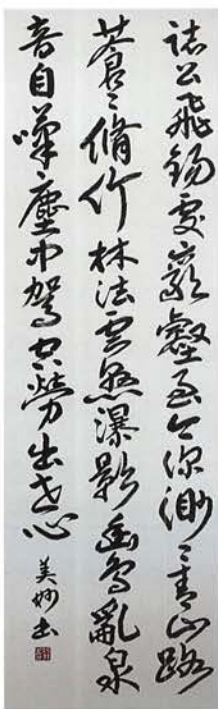 誌公飛錫處壑至今深渺々青山路
蒼々脩竹林法雲懸瀑影幽鳥亂泉
音自嘆塵中駕空勞出世心
美妙書